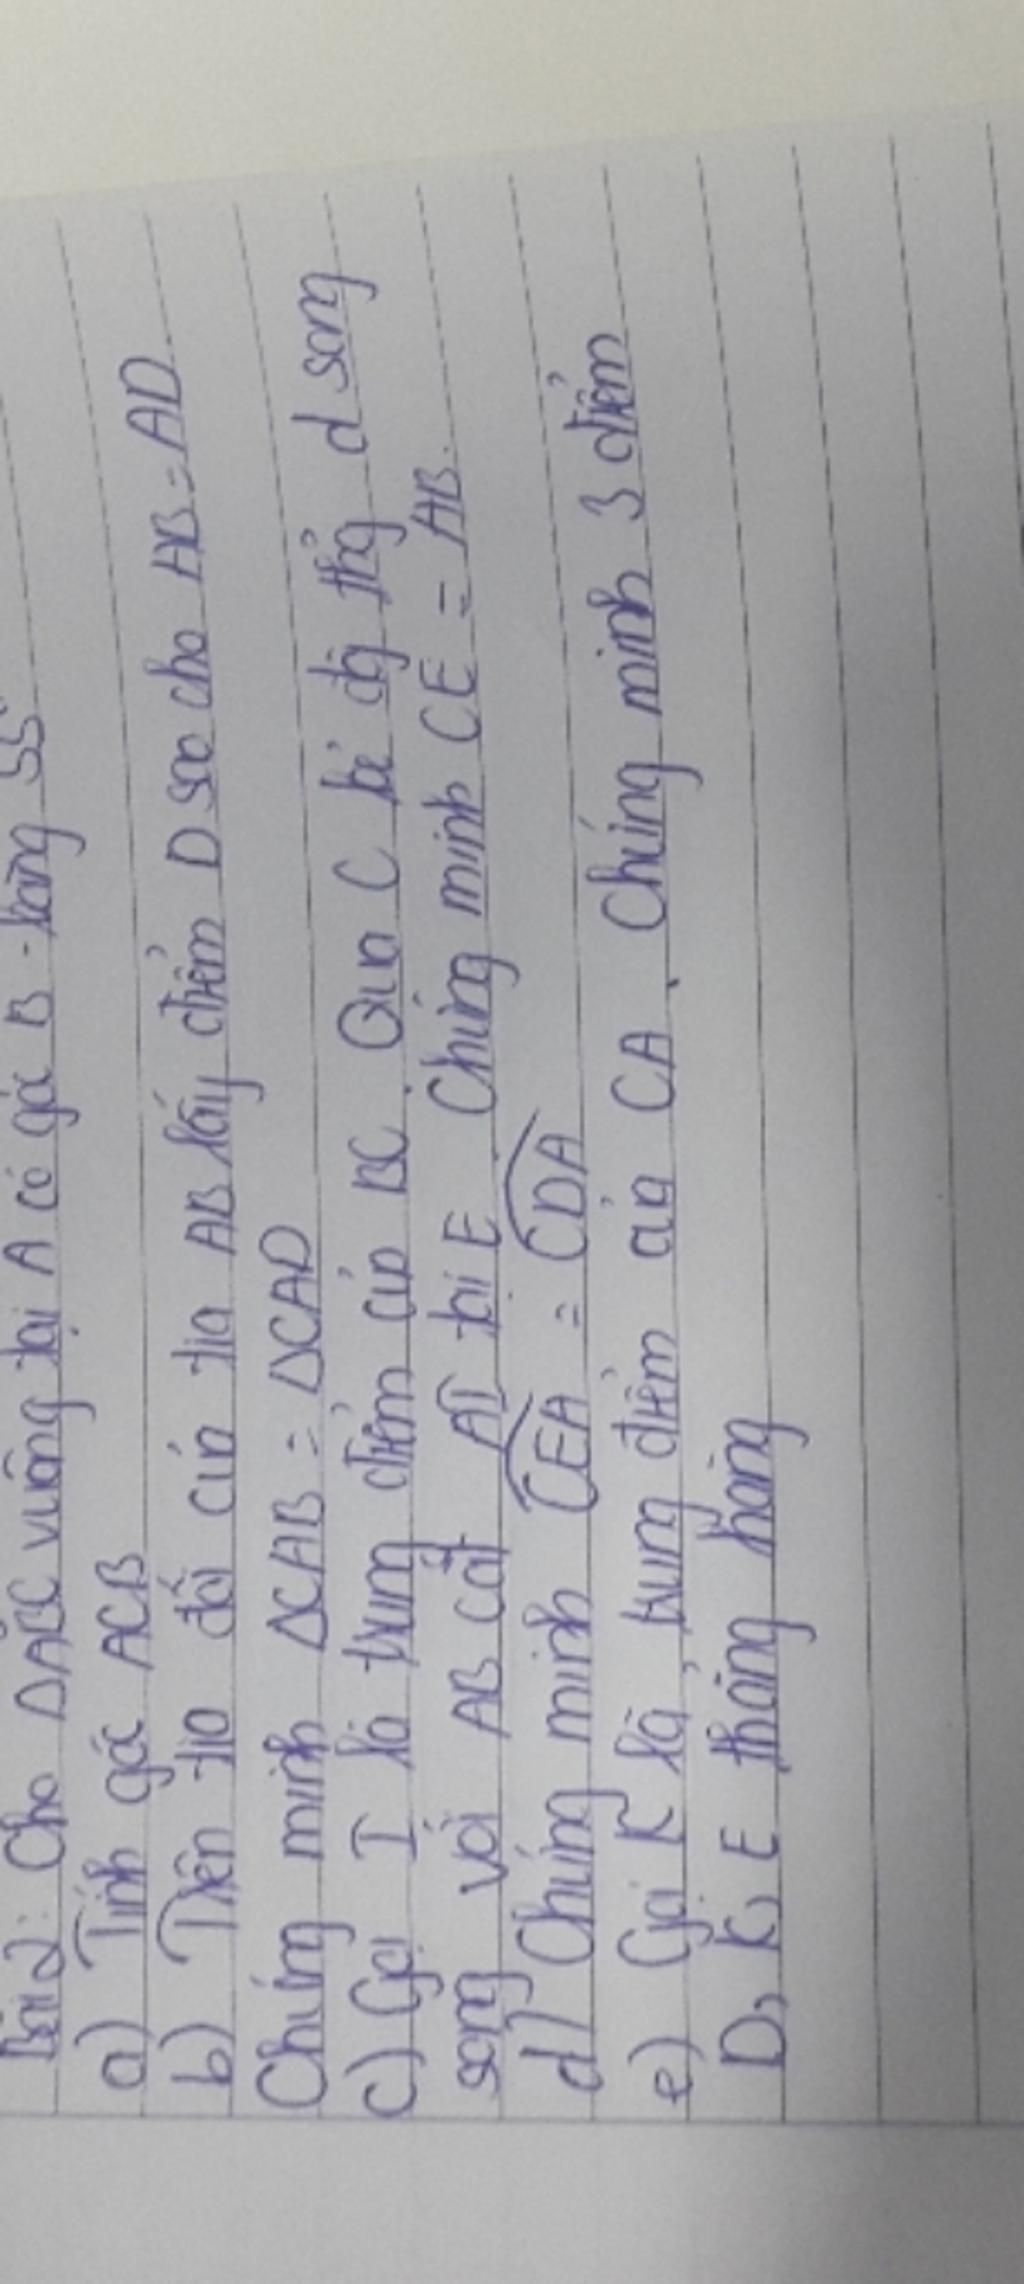 Bài 2: Cho ΔABC vuông tại A có góc B bằng 55°
a) Tính góc ACB
b) Trên tia đối của tia AB lấy điểm D sao cho AB = AD
Chứng minh ΔCAB = ΔCAD
c) Gọi I là trung điểm của BC. Qua C kẻ đg thg d song
song với AB cắt AI tại E. Chứng minh CE = AB.
d) Chứng minh CEA = CDA
e) Gọi K là trung điểm của CA. Chứng minh 3 điểm
D, K, E thẳng hàng